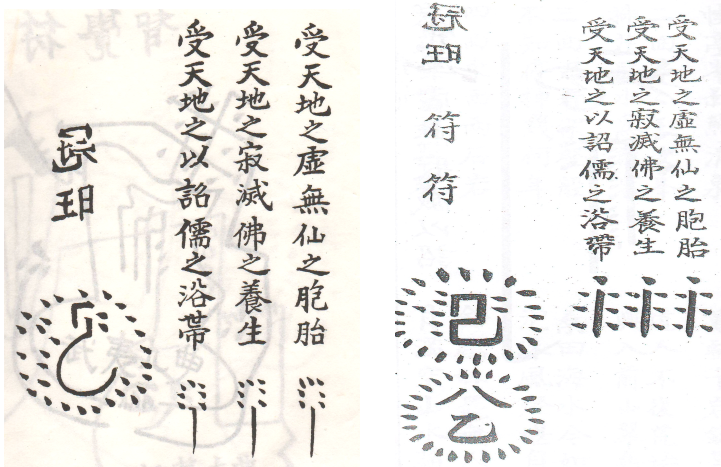 受天地之虛無仙之胞胎
受天地之寂滅佛之養生
受天地之以詔儒之浴帶
冠旺
受天地之虛無仙之胞胎
受天地之寂滅佛之養生
受天地之以詔儒之浴帶
冠旺符符
八乙